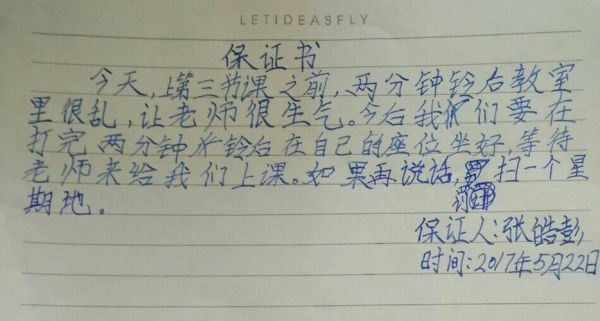 LETIDEASFLY
保证书
今天,上第三节课之前,两分钟铃后教室
里很乱,让老师很生气。今后我们要在
打完两分钟铃后在自己的座位坐好,等待
老师来给我们上课。如果再说话,扫一个星
期地。
保证人:张皓彭
时间:2017年5月22日